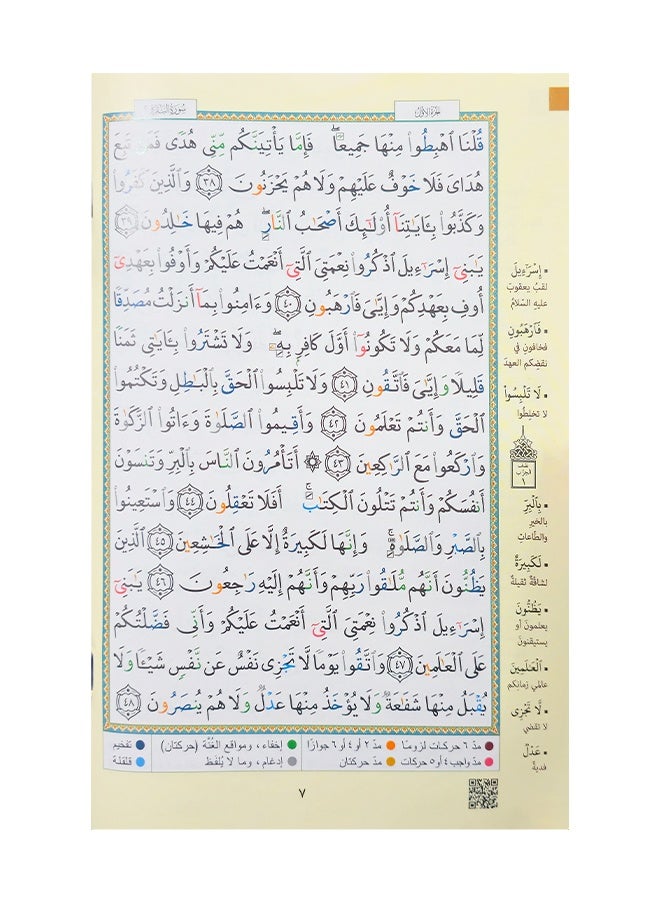 سُورَةُ البَقَرَةِ
الجُزْءُ الأَوَّلُ
قُلْنَا ٱهْبِطُوا۟ مِنْهَا جَمِيعًا ۖ فَإِمَّا يَأْتِيَنَّكُم مِّنِّى هُدًى فَمَن تَبِعَ
هُدَاىَ فَلَا خَوْفٌ عَلَيْهِمْ وَلَا هُمْ يَحْزَنُونَ ٣٨ وَٱلَّذِينَ كَفَرُوا۟
وَكَذَّبُوا۟ بِـَٔايَـٰتِنَآ أُو۟لَـٰٓئِكَ أَصْحَـٰبُ ٱلنَّارِ ۖ هُمْ فِيهَا خَـٰلِدُونَ ٣٩
يَـٰبَنِىٓ إِسْرَٰٓءِيلَ ٱذْكُرُوا۟ نِعْمَتِىَ ٱلَّتِىٓ أَنْعَمْتُ عَلَيْكُمْ وَأَوْفُوا۟ بِعَهْدِىٓ
أُوفِ بِعَهْدِكُمْ وَإِيَّـٰىَ فَٱرْهَبُونِ ٤٠ وَءَامِنُوا۟ بِمَآ أَنزَلْتُ مُصَدِّقًا
لِّمَا مَعَكُمْ وَلَا تَكُونُوٓا۟ أَوَّلَ كَافِرٍۭ بِهِۦ ۖ وَلَا تَشْتَرُوا۟ بِـَٔايَـٰتِى ثَمَنًا
قَلِيلًا وَإِيَّـٰىَ فَٱتَّقُونِ ٤١ وَلَا تَلْبِسُوا۟ ٱلْحَقَّ بِٱلْبَـٰطِلِ وَتَكْتُمُوا۟
ٱلْحَقَّ وَأَنتُمْ تَعْلَمُونَ ٤٢ وَأَقِيمُوا۟ ٱلصَّلَوٰةَ وَءَاتُوا۟ ٱلزَّكَوٰةَ
وَٱرْكَعُوا۟ مَعَ ٱلرَّٰكِعِينَ ٤٣ ۞ أَتَأْمُرُونَ ٱلنَّاسَ بِٱلْبِرِّ وَتَنسَوْنَ
أَنفُسَكُمْ وَأَنتُمْ تَتْلُونَ ٱلْكِتَـٰبَ ۚ أَفَلَا تَعْقِلُونَ ٤٤ وَٱسْتَعِينُوا۟
بِٱلصَّبْرِ وَٱلصَّلَوٰةِ ۚ وَإِنَّهَا لَكَبِيرَةٌ إِلَّا عَلَى ٱلْخَـٰشِعِينَ ٤٥ ٱلَّذِينَ
يَظُنُّونَ أَنَّهُم مُّلَـٰقُوا۟ رَبِّهِمْ وَأَنَّهُمْ إِلَيْهِ رَٰجِعُونَ ٤٦ يَـٰبَنِىٓ
إِسْرَٰٓءِيلَ ٱذْكُرُوا۟ نِعْمَتِىَ ٱلَّتِىٓ أَنْعَمْتُ عَلَيْكُمْ وَأَنِّى فَضَّلْتُكُمْ
عَلَى ٱلْعَـٰلَمِينَ ٤٧ وَٱتَّقُوا۟ يَوْمًا لَّا تَجْزِى نَفْسٌ عَن نَّفْسٍ شَيْـًٔا وَلَا
يُقْبَلُ مِنْهَا شَفَـٰعَةٌ وَلَا يُؤْخَذُ مِنْهَا عَدْلٌ وَلَا هُمْ يُنصَرُونَ ٤٨
▪ إِسْرَٰٓءِيلَ
لقبُ يعقوبَ
عليه السّلامُ
▪ فَٱرْهَبُونِ
فخافونِ في
نقضِكم العهدَ
▪ لَا تَلْبِسُوا۟
لا تخلِطُوا
نصف
الحزب
١
▪ بِٱلْبِرِّ
بالخيرِ
والطّاعاتِ
▪ لَكَبِيرَةٌ
لشاقّةٌ ثقيلةٌ
▪ يَظُنُّونَ
يعلمونَ أو
يستيقنونَ
▪ ٱلْعَـٰلَمِينَ
عالَمي زمانِكم
▪ لَّا تَجْزِى
لا تقضي
▪ عَدْلٌ
فديةٌ
مدّ ٦ حركات لزوماً مدّ ٢ أو ٤ أو ٦ جوازاً إخفاء، ومواقع الغُنَّة (حركتان) تفخيم
مدّ واجب ٤ أو ٥ حركات مدّ حركتان إدغام، وما لا يُلفَظ قلقلة
٧